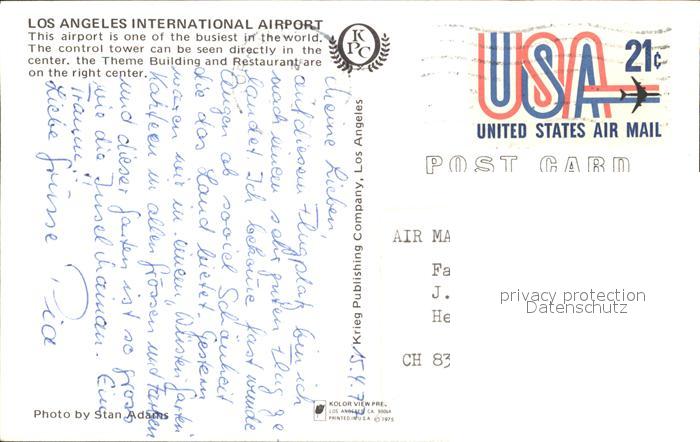 LOS ANGELES INTERNATIONAL AIRPORT
This airport is one of the busiest in the world.
The control tower can be seen directly in the
center. the Theme Building and Restaurant are
on the right center.
KPC
USA 21¢
UNITED STATES AIR MAIL
POST CARD
Meine Lieben,
auf diesem Flugplatz bin ich
nach einem sehr guten Flug ge
landet. Ich bekomme fast wunde
Augen ob soviel Schönheit
die das Land bietet. Gestern
waren wir in einem Wüstengarten
Kakteen in allen Grössen und Farben
und dieser Garten ist so gross
wie die Insel Mainau. Ein
Traum!
Liebe Grüsse Pia
15.4.7
Krieg Publishing Company, Los Angeles
AIR MA
Fa
J.
He
CH 83
privacy protection
Datenschutz
Photo by Stan Adams
KOLOR VIEW PRE
LOS ANGELES, CA. 90064
PRINTED IN U.S.A. © 1975